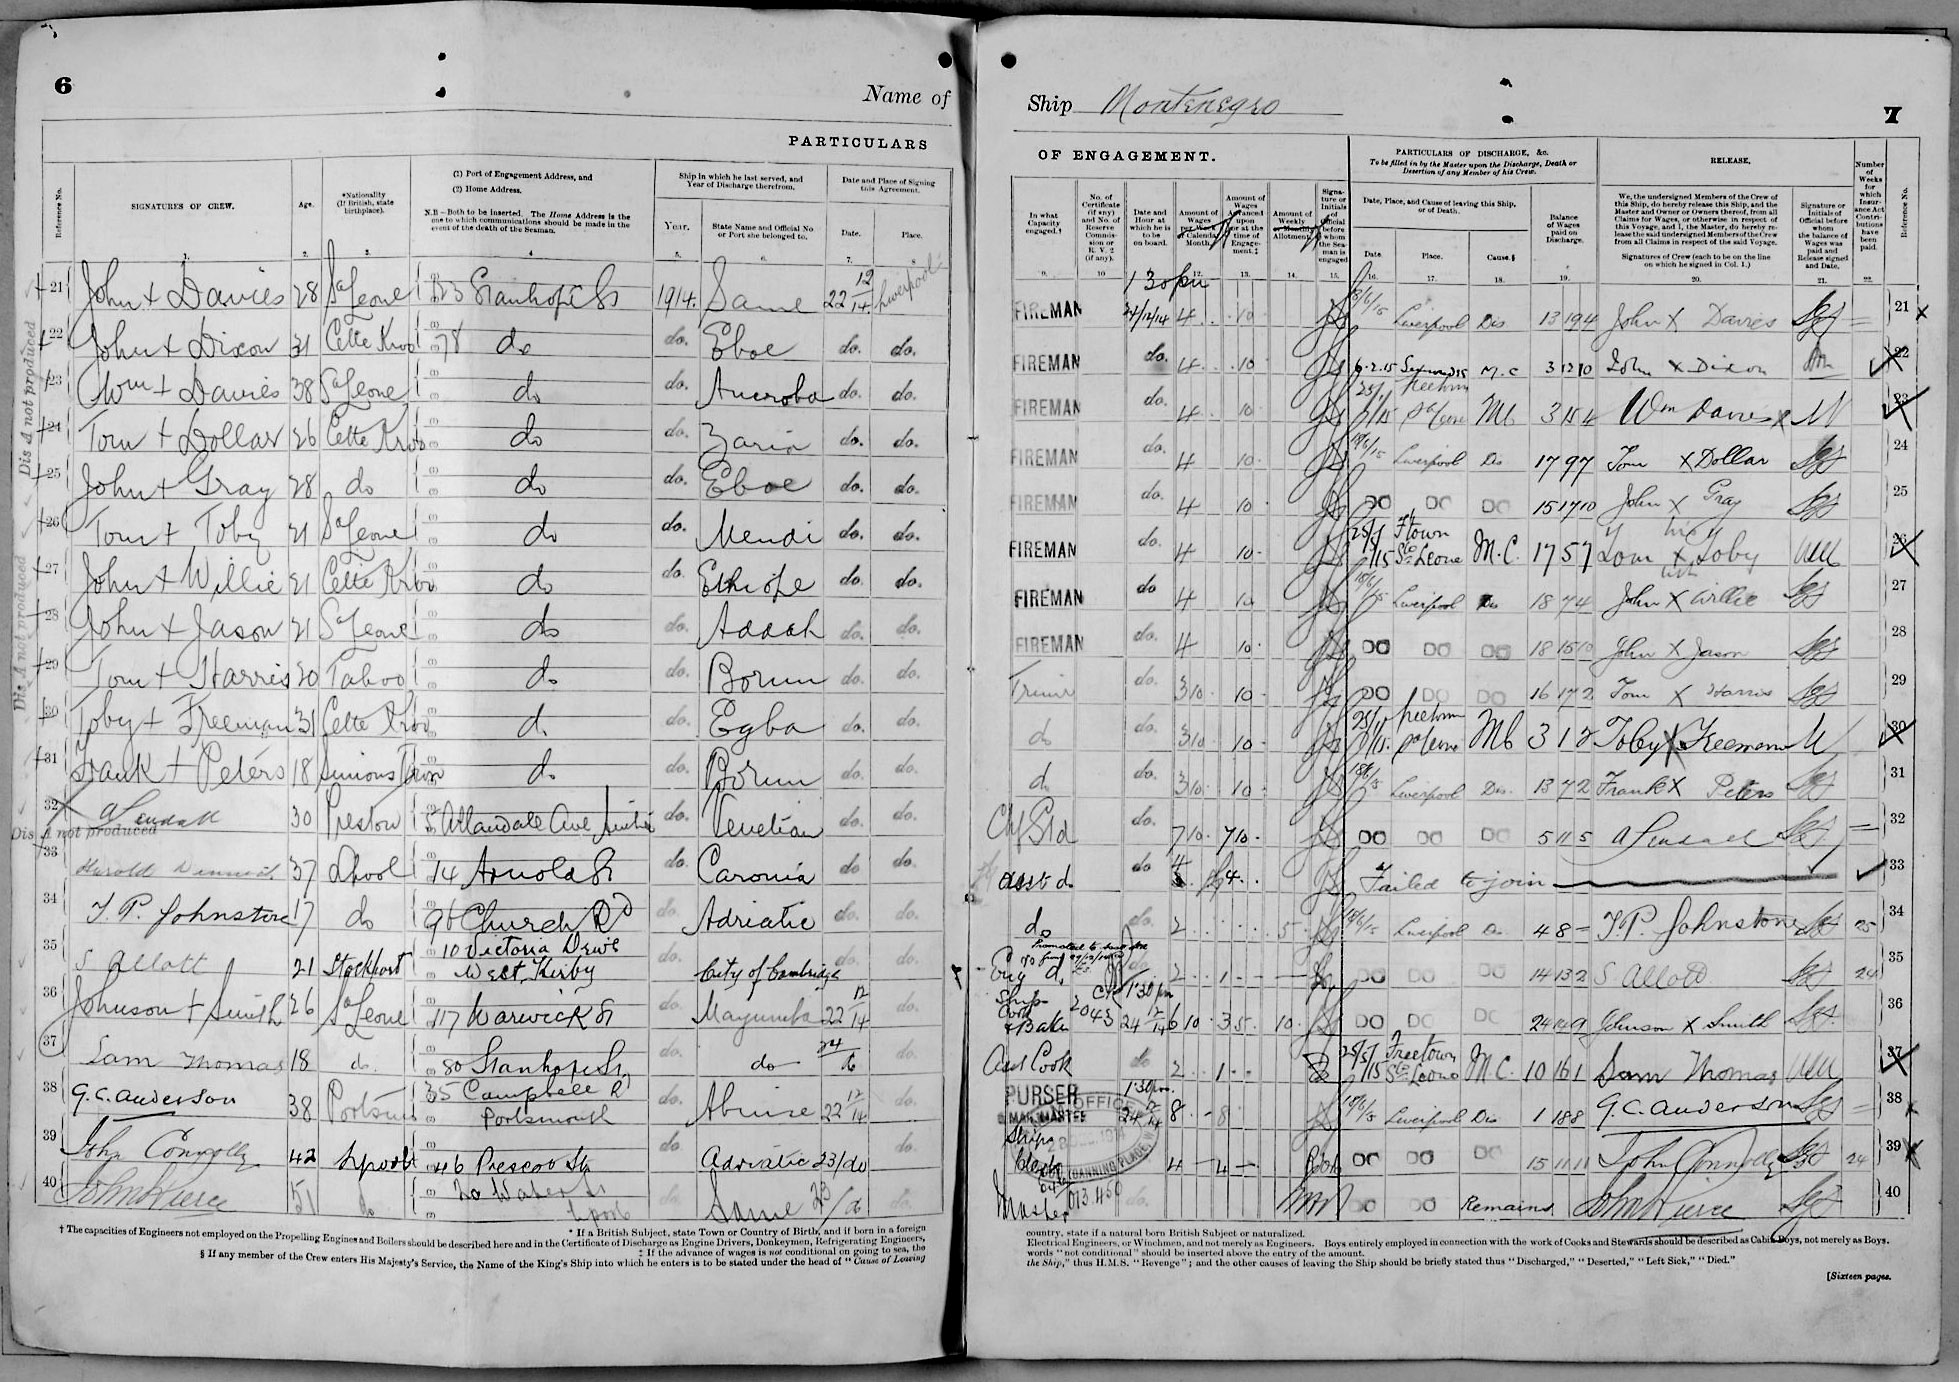 6
Name of
PARTICULARS
Reference No.
SIGNATURES OF CREW.
Age.
*Nationality (If British, state birthplace).
(1) Port of Engagement Address, and
(2) Home Address.
N.B—Both to be inserted. The Home Address is the one to which communications should be made in the event of the death of the Seaman.
Ship in which he last served, and Year of Discharge therefrom.
Year.
State Name and Official No or Port she belonged to.
Date and Place of Signing this Agreement.
Date.
Place.
1. 2. 3. 4 5. 6. 7. 8
21 John + Davies 28 Sa Leone Stanhope St 1914. Same 22 12/14 Liverpool
22 John + Dixon 31 Cette Kroo 78 do do. Eboe do. do.
23 Wm + Davies 38 Sa Leone do do. Ancroba do. do.
24 Tom + Dollar 26 Cette Kroo do do. Zaria do. do.
25 John + Gray 28 do do do. Eboe do. do.
26 Tom + Toby 21 Sa Leone do do. Mendi do. do.
27 John + Willie 21 Cette Kroo do do. Ethiope do. do.
28 John + Jason 21 Sa Leone do do. Addah do. do.
29 Tom + Harris 20 Taboo do do. Bornu do. do.
30 Toby + Freeman 31 Cette Kroo d. do. Egba do. do.
31 Frank + Peters 18 Simons Town do do. Bornu do. do.
32 30 Preston Allandale Ave do. Venetian do. do.
Dis A not produced
Dis A not produced
Dis A not produced
33 Harold 37 Lpool 14 Arnold St do. Caronia do do.
34 T. P. Johnstone 17 do 96 Church Rd do. Adriatic do. do.
35 S Allott 21 Stockport 10 Victoria Drive West Kirby do. City of Cambridge do.
36 Johnson + Smith 26 Sa Leone 117 Warwick St do. Mayumba 22 12/14 do.
37 Sam Thomas 18 do. 80 Stanhope St do. do 24/6 do.
38 G.C. Anderson 38 35 Campbell Rd Portsmouth do. 22 12/14 do.
39 John Connolly 42 46 Prescot St do. Adriatic 23/do do.
40 John Pierce 51 do 20 Water St do. Same 23/do do.
† The capacities of Engineers not employed on the Propelling Engines and Boilers should be described here and in the Certificate of Discharge as Engine Drivers, Donkeymen, Refrigerating Engineers,
* If a British Subject, state Town or Country of Birth, and if born in a foreign
‡ If the advance of wages is not conditional on going to sea, the
§ If any member of the Crew enters His Majesty's Service, the Name of the King's Ship into which he enters is to be stated under the head of "Cause of Leaving
Ship Montenegro
7
OF ENGAGEMENT.
PARTICULARS OF DISCHARGE, &c.
To be filled in by the Master upon the Discharge, Death or Desertion of any Member of his Crew.
RELEASE.
In what Capacity engaged.†
No. of Certificate (if any) and No. of Reserve Commission or R. V. 2 (if any).
Date and Hour at which he is to be on board.
Amount of Wages per Week or Calendar Month.
Amount of Wages Advanced upon or at the time of Engagement.‡
Amount of Weekly or Monthly Allotment.
Signature or Initials of Official before whom the Seaman is engaged
Date, Place, and Cause of leaving this Ship, or of Death.
Date.
Place.
Cause.§
Balance of Wages paid on Discharge.
We, the undersigned Members of the Crew of this Ship, do hereby release this Ship, and the Master and Owner or Owners thereof, from all Claims for Wages, or otherwise in respect of this Voyage, and I, the Master, do hereby release the said undersigned Members of the Crew from all Claims in respect of the said Voyage.
Signatures of Crew (each to be on the line on which he signed in Col. 1.)
Signature or Initials of Official before whom the balance of Wages was paid and Release signed and Date.
Number of Weeks for which Insurance Act Contributions have been paid.
Reference No.
9. 10 12. 13. 14. 15. 16. 17. 18. 19. 20. 21. 22.
1 30 pm
FIREMAN 24/12/14 4 10 Liverpool Dis 13 19 4 John X Davies 21
FIREMAN do. 4 10 6.2.15 M.C 3 12 10 John x Dixon 22
FIREMAN do. 4 10 Freetown Sa Leone 3 15 4 Wm Davies x 23
FIREMAN do. 4 10 Liverpool Dis 17 9 7 Tom X Dollar 24
FIREMAN do. 4 10 DO DO DO 15 17 10 John x Gray 25
FIREMAN do. 4 10 Ftown Sa Leone M.C. 17 5 7 Tom x Toby 26
FIREMAN do 4 10 Liverpool Dis 18 7 4 John X Willie 27
FIREMAN do. 4 10 DO DO DO 18 15 10 John X Jason 28
Trimr do. 3 10 10 DO DO DO 16 17 2 Tom X Harris 29
do do. 3 10 10 Freetown Sa Leone 3 1 2 Toby X Freeman 30
do do. 3 10 10 Liverpool Dis. 13 7 2 Frank X Peters 31
Chf Std do. 7 10 7 10 DO DO DO 5 11 5 32
Asst do do 4 Failed to join 33
do do. 2 5 Liverpool Dis 4 8 – T.P. Johnstone 25 34
2 1 DO DO DO 14 13 2 S Allott 24 35
Ships Cook & Baker 2043 1.30 pm 24 12/14 6 10 3 5 10 DO DO DO 24 14 9 Johnson X Smith 36
Asst Cook do 2 1 Freetown Sa Leone M.C. 10 16 1 Sam Thomas 37
PURSER 1.30 pm 24 12/14 8 8 Liverpool Dis 1 18 8 G.C. Anderson 38
Ships Clerk 4 – 4 – DO DO DO 15 11 11 John Connolly 24 39
Master do. DO DO Remains John Pierce 40
country, state if a natural born British Subject or naturalized.
Electrical Engineers, or Winchmen, and not merely as Engineers. Boys entirely employed in connection with the work of Cooks and Stewards should be described as Cabin Boys, not merely as Boys.
words "not conditional" should be inserted above the entry of the amount.
the Ship," thus H.M.S. "Revenge"; and the other causes of leaving the Ship should be briefly stated thus "Discharged," "Deserted," "Left Sick," "Died."
[Sixteen pages.